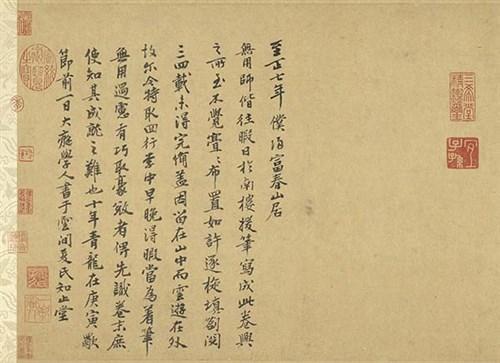 三希堂精鑑璽
宜子孫
至正七年僕歸富春山居
無用師偕往暇日於南樓援筆寫成此卷興
之所至不覺亹亹布置如許逐旋填劄閱
三四載未得完備盖因留在山中而雲遊在外
故尔今特取回行李中早晚得暇當為著筆
無用過慮有巧取豪敚者俾先識卷末庶
使知其成就之難也十年青龍在庚寅歜
節前一日大癡學人書于雲間夏氏知止堂